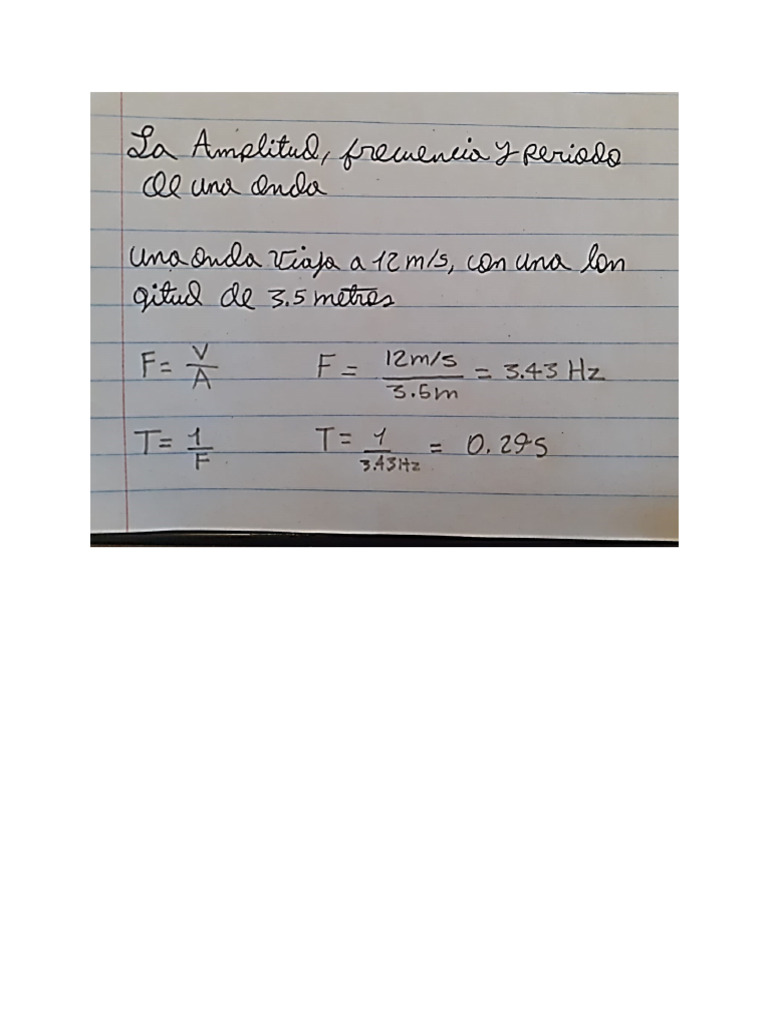 La Amplitud, frecuencia y periodo
de una onda
una onda viaja a 12 m/s, con una lon
gitud de 3.5 metros
F = V/A F = 12m/s / 3.5m = 3.43 Hz
T = 1/F T = 1/3.43Hz = 0.29s